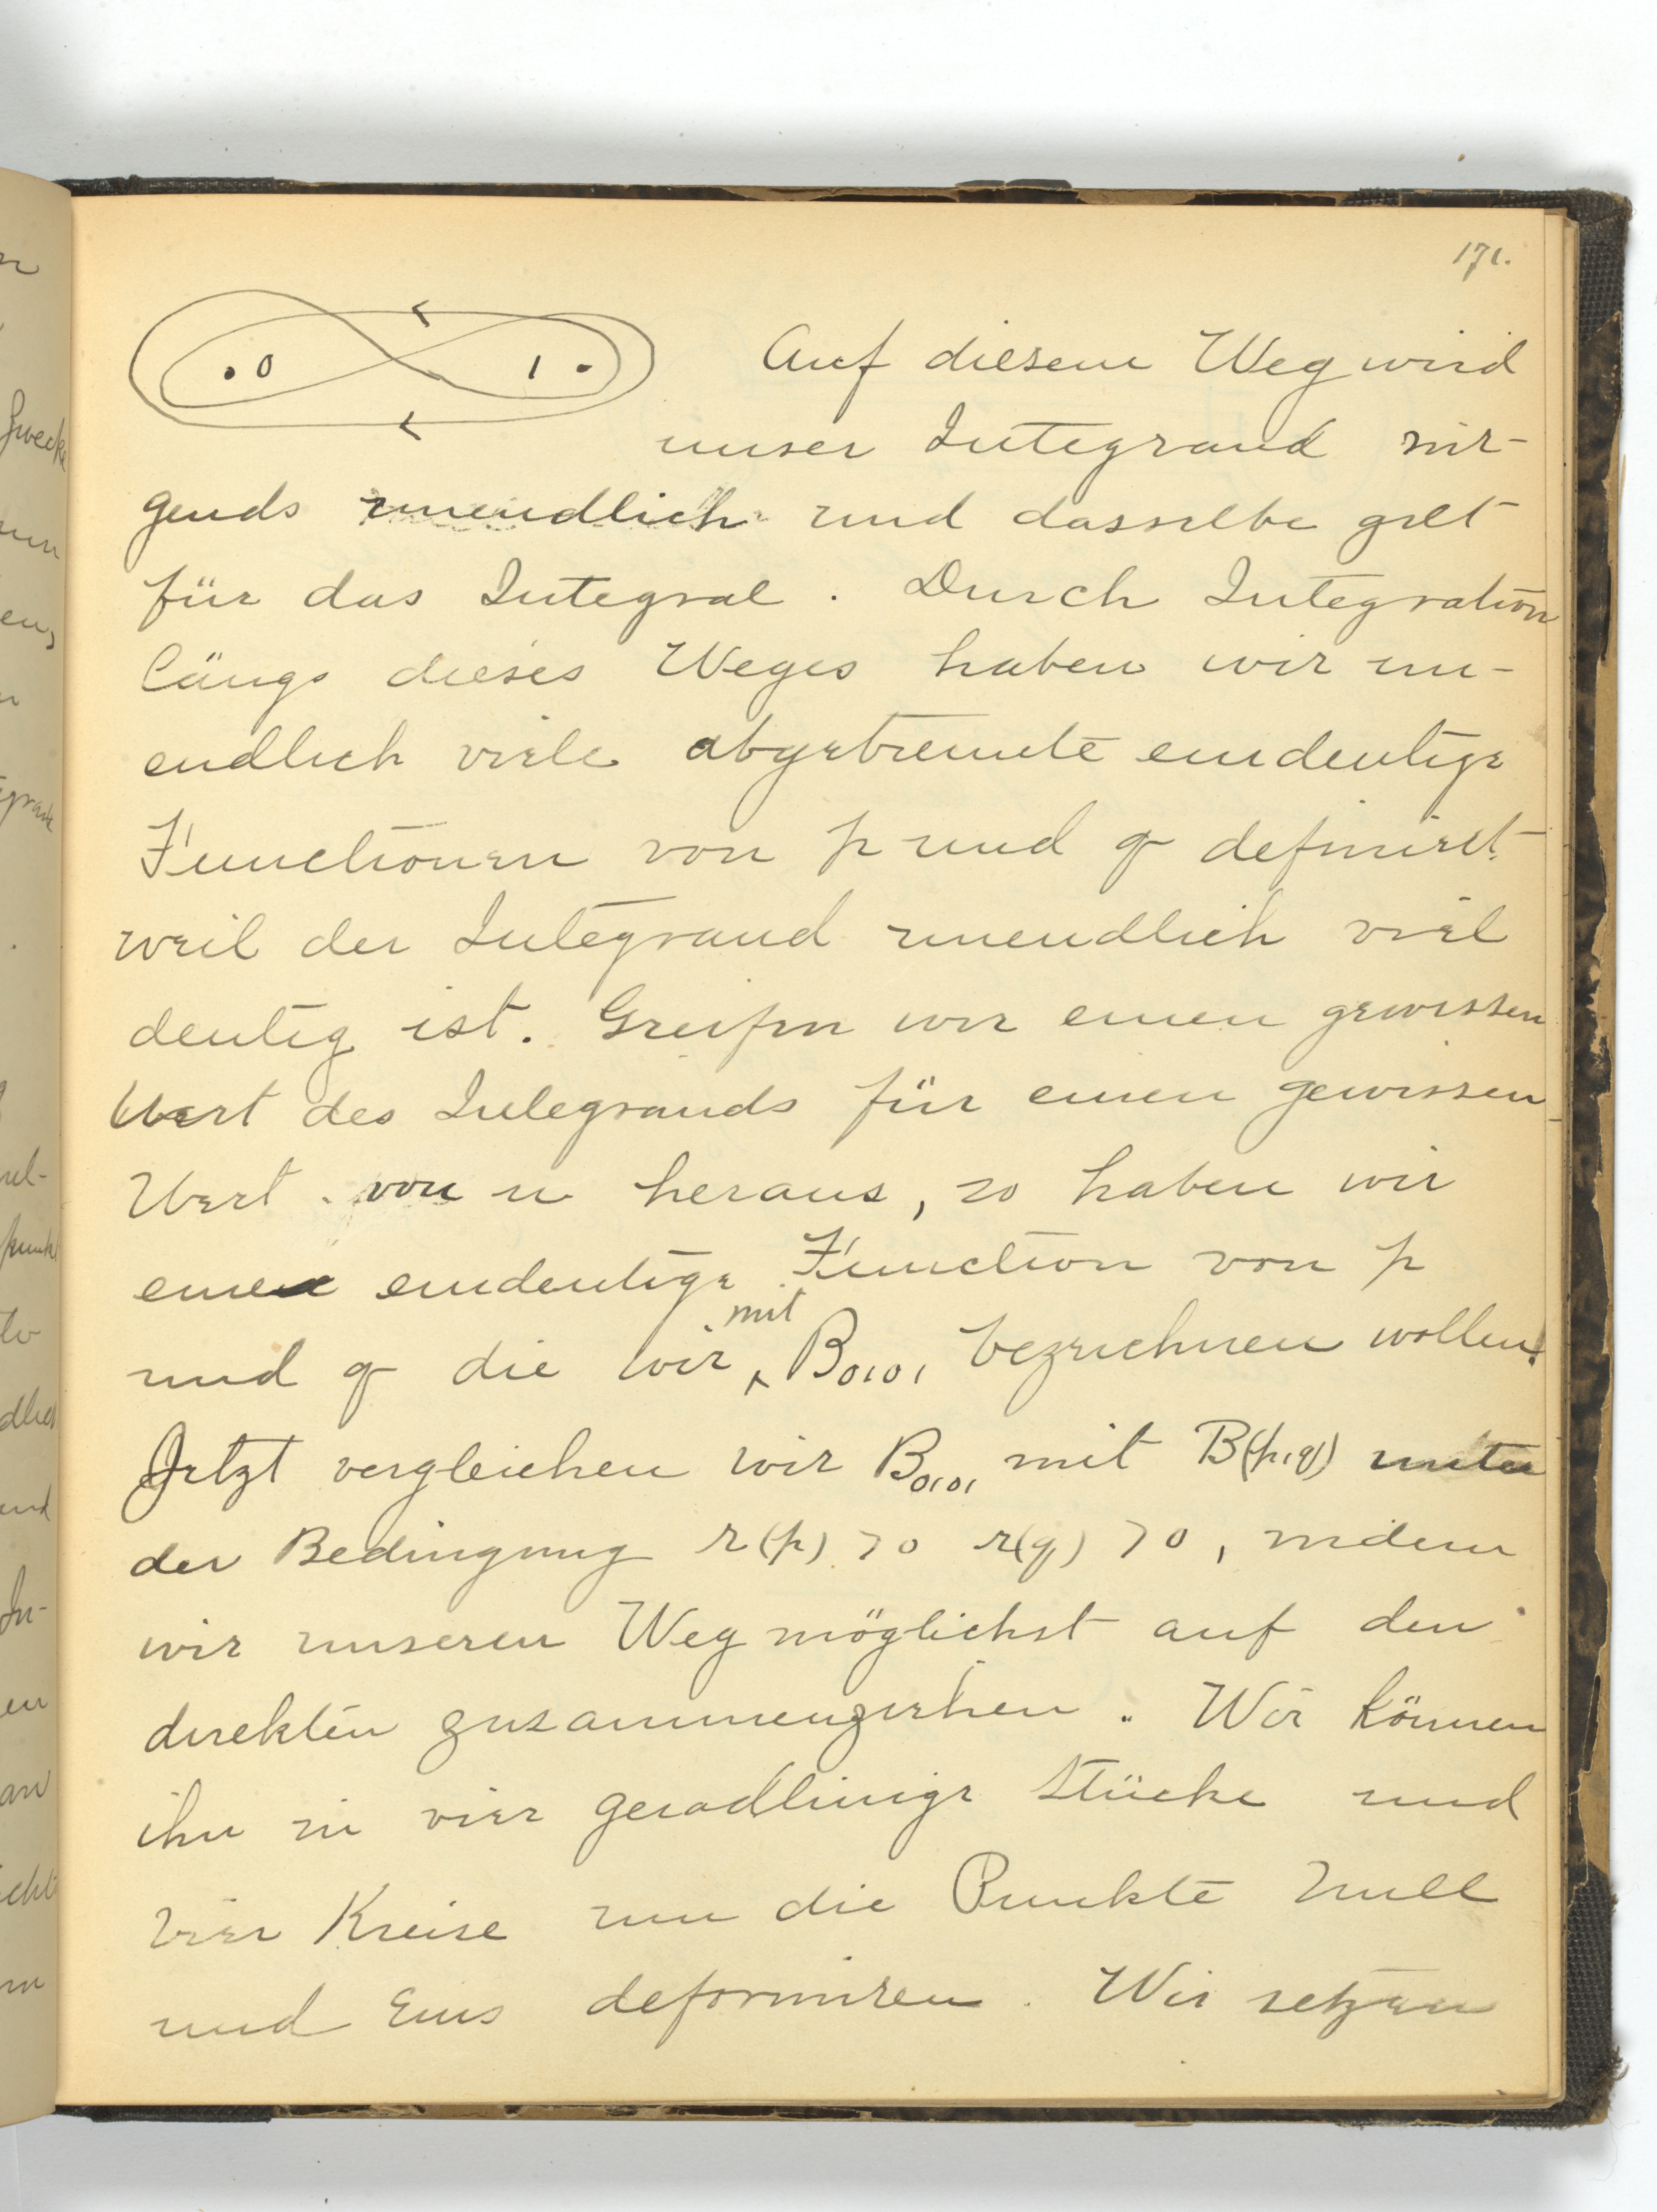 171.
0 1
Auf diesem Weg wird
unser Integrand nir-
gends unendlich und dasselbe gilt
für das Integral. Durch Integration
längs dieses Weges haben wir un-
endlich viele abgetrennte eindeutige
Functionen von p und q definirt
weil der Integrand unendlich viel
deutig ist. Greifen wir einen gewissen
Wert des Integrands für einen gewissen
Wert von u heraus, so haben wir
eine eindeutige Function von p
mit
und q die wir ‸ B₀₁₀₁ bezeichnen wollen.
Jetzt vergleichen wir B₀₁₀₁ mit B(p,q) unter
der Bedingung r(p) > 0 r(q) > 0, indem
wir unseren Weg möglichst auf den
direkten zusammenziehen. Wir können
ihn in vier geradlinige Stücke und
vier Kreise um die Punkte Null
und Eins deformiren. Wir setzen